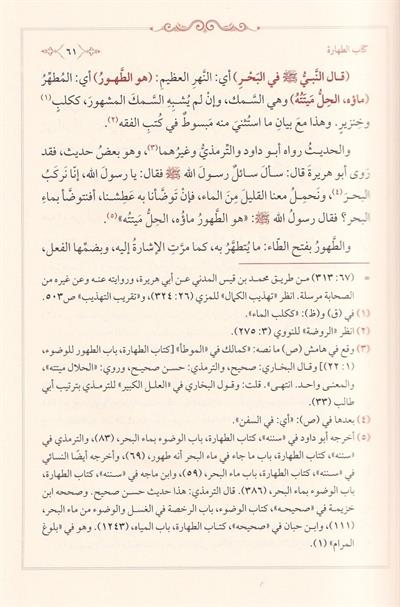 كتاب الطهارة
٦١
(قال النَّبيُّ ﷺ في البَحْرِ) أي: النَّهرِ العظيمِ: (هو الطَّهورُ) أي: المُطهِّرُ
(ماؤه، الحِلُّ مَيتَتُهُ) وهي السَّمك، وإنْ لم يُشبِهِ السَّمكَ المشهورَ، ككلبٍ(١)
وخنزيرٍ. وهذا معَ بيانِ ما استُثنيَ منه مَبسوطٌ في كُتبِ الفقه(٢).
والحديثُ رواه أبو داود والتِّرمذيُّ وغيرُهما(٣)، وهو بعضُ حديث، فقد
رَوى أبو هريرةَ قال: سألَ سائلٌ رسولَ الله ﷺ فقال: يا رسولَ الله، إنَّا نَركَبُ
البحرَ(٤)، ونَحمِلُ معنا القليلَ مِنَ الماء، فإن تَوضَّأنا به عَطِشنا، أفنتوضَّأُ بماءِ
البحرِ؟ فقال رسولُ الله ﷺ: «هو الطَّهورُ ماؤُه، الحِلُّ مَيتتُه»(٥).
والطَّهورُ بفتحِ الطَّاء: ما يُتطهَّرُ به، كما مرَّتِ الإشارةُ إليه، وبضمِّها الفعل،
= (٦٧: ٣١٣) مـن طريـق محمـد بـن قيس المدني عن أبي هريرة، وروايته عنه وعن غيره من
الصحابة مرسلة. انظر «تهذيب الكمال» للمزي (٢٦: ٣٢٤)، و«تقريب التهذيب» ص٥٠٣.
(١) في (ق) و(ظ): «ككلب الماء».
(٢) انظر «الروضة» للنووي (٣: ٢٧٥).
(٣) وقع في هامش (ص) ما نصه: «كمالك في «الموطأ» [كتاب الطهارة، باب الطهور للوضوء،
(١: ٢٢)] وقال البخاري: صحيح، والترمذي: حسن صحيـح، وروي: «الحلال ميتته»،
والمعنى واحـد. انتهـى». قلت: وقول البخاري في «العلـل الكبير» للترمـذي بترتيب أبي
طالب (٣٣).
(٤) بعدها في (ص): «أي: في السفن».
(٥) أخرجه أبو داود في «سننه»، كتاب الطهارة، باب الوضوء بماء البحر، (٨٣)، والترمذي في
«سننه»، كتاب الطهارة، باب ما جاء في ماء البحر أنه طهور، (٦٩)، وأخرجه أيضًا النسائي
في «سننه»، كتاب الطهارة، باب ماء البحر، (٥٩)، وابن ماجه في «سننه»، كتاب الطهارة،
باب الوضوء بماء البحر، (٣٨٦). قال الترمذي: هذا حديث حسن صحيح. وصححه ابن
خزيمـة في «صحيحـه»، كتاب الوضوء، باب الرخصة في الغسل والوضوء من ماء البحر،
(١١١)، وابن حبان في «صحيحه»، كتاب الطهارة، باب المياه، (١٢٤٣). وهو في «بلوغ
المرام» (١).